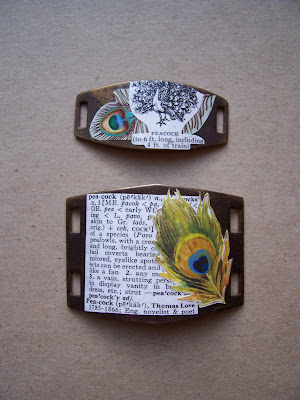 PEACOCK
(to 6 ft. long, including
4 ft. of train)
pea·cock (pē′käk′) n.
n.1 [ME. pacok < pa
OE. pea < early WG
ing < L. pavo, p
akin to Gr. taōs,
orig.) + cok, cock¹]
of a species (Pavo
peafowls, with a cres
and long, brightly c
tail coverts bearing
colored, eyelike spot
ects can be erected and
like a fan 2. any m
3. a vain, strutting pers
to display vanity in b
dress, etc.; strut —pea′cock
pea′cock′y adj.
Pea·cock (pē′käk′), Thomas Love
1785-1866; Eng. novelist & poet